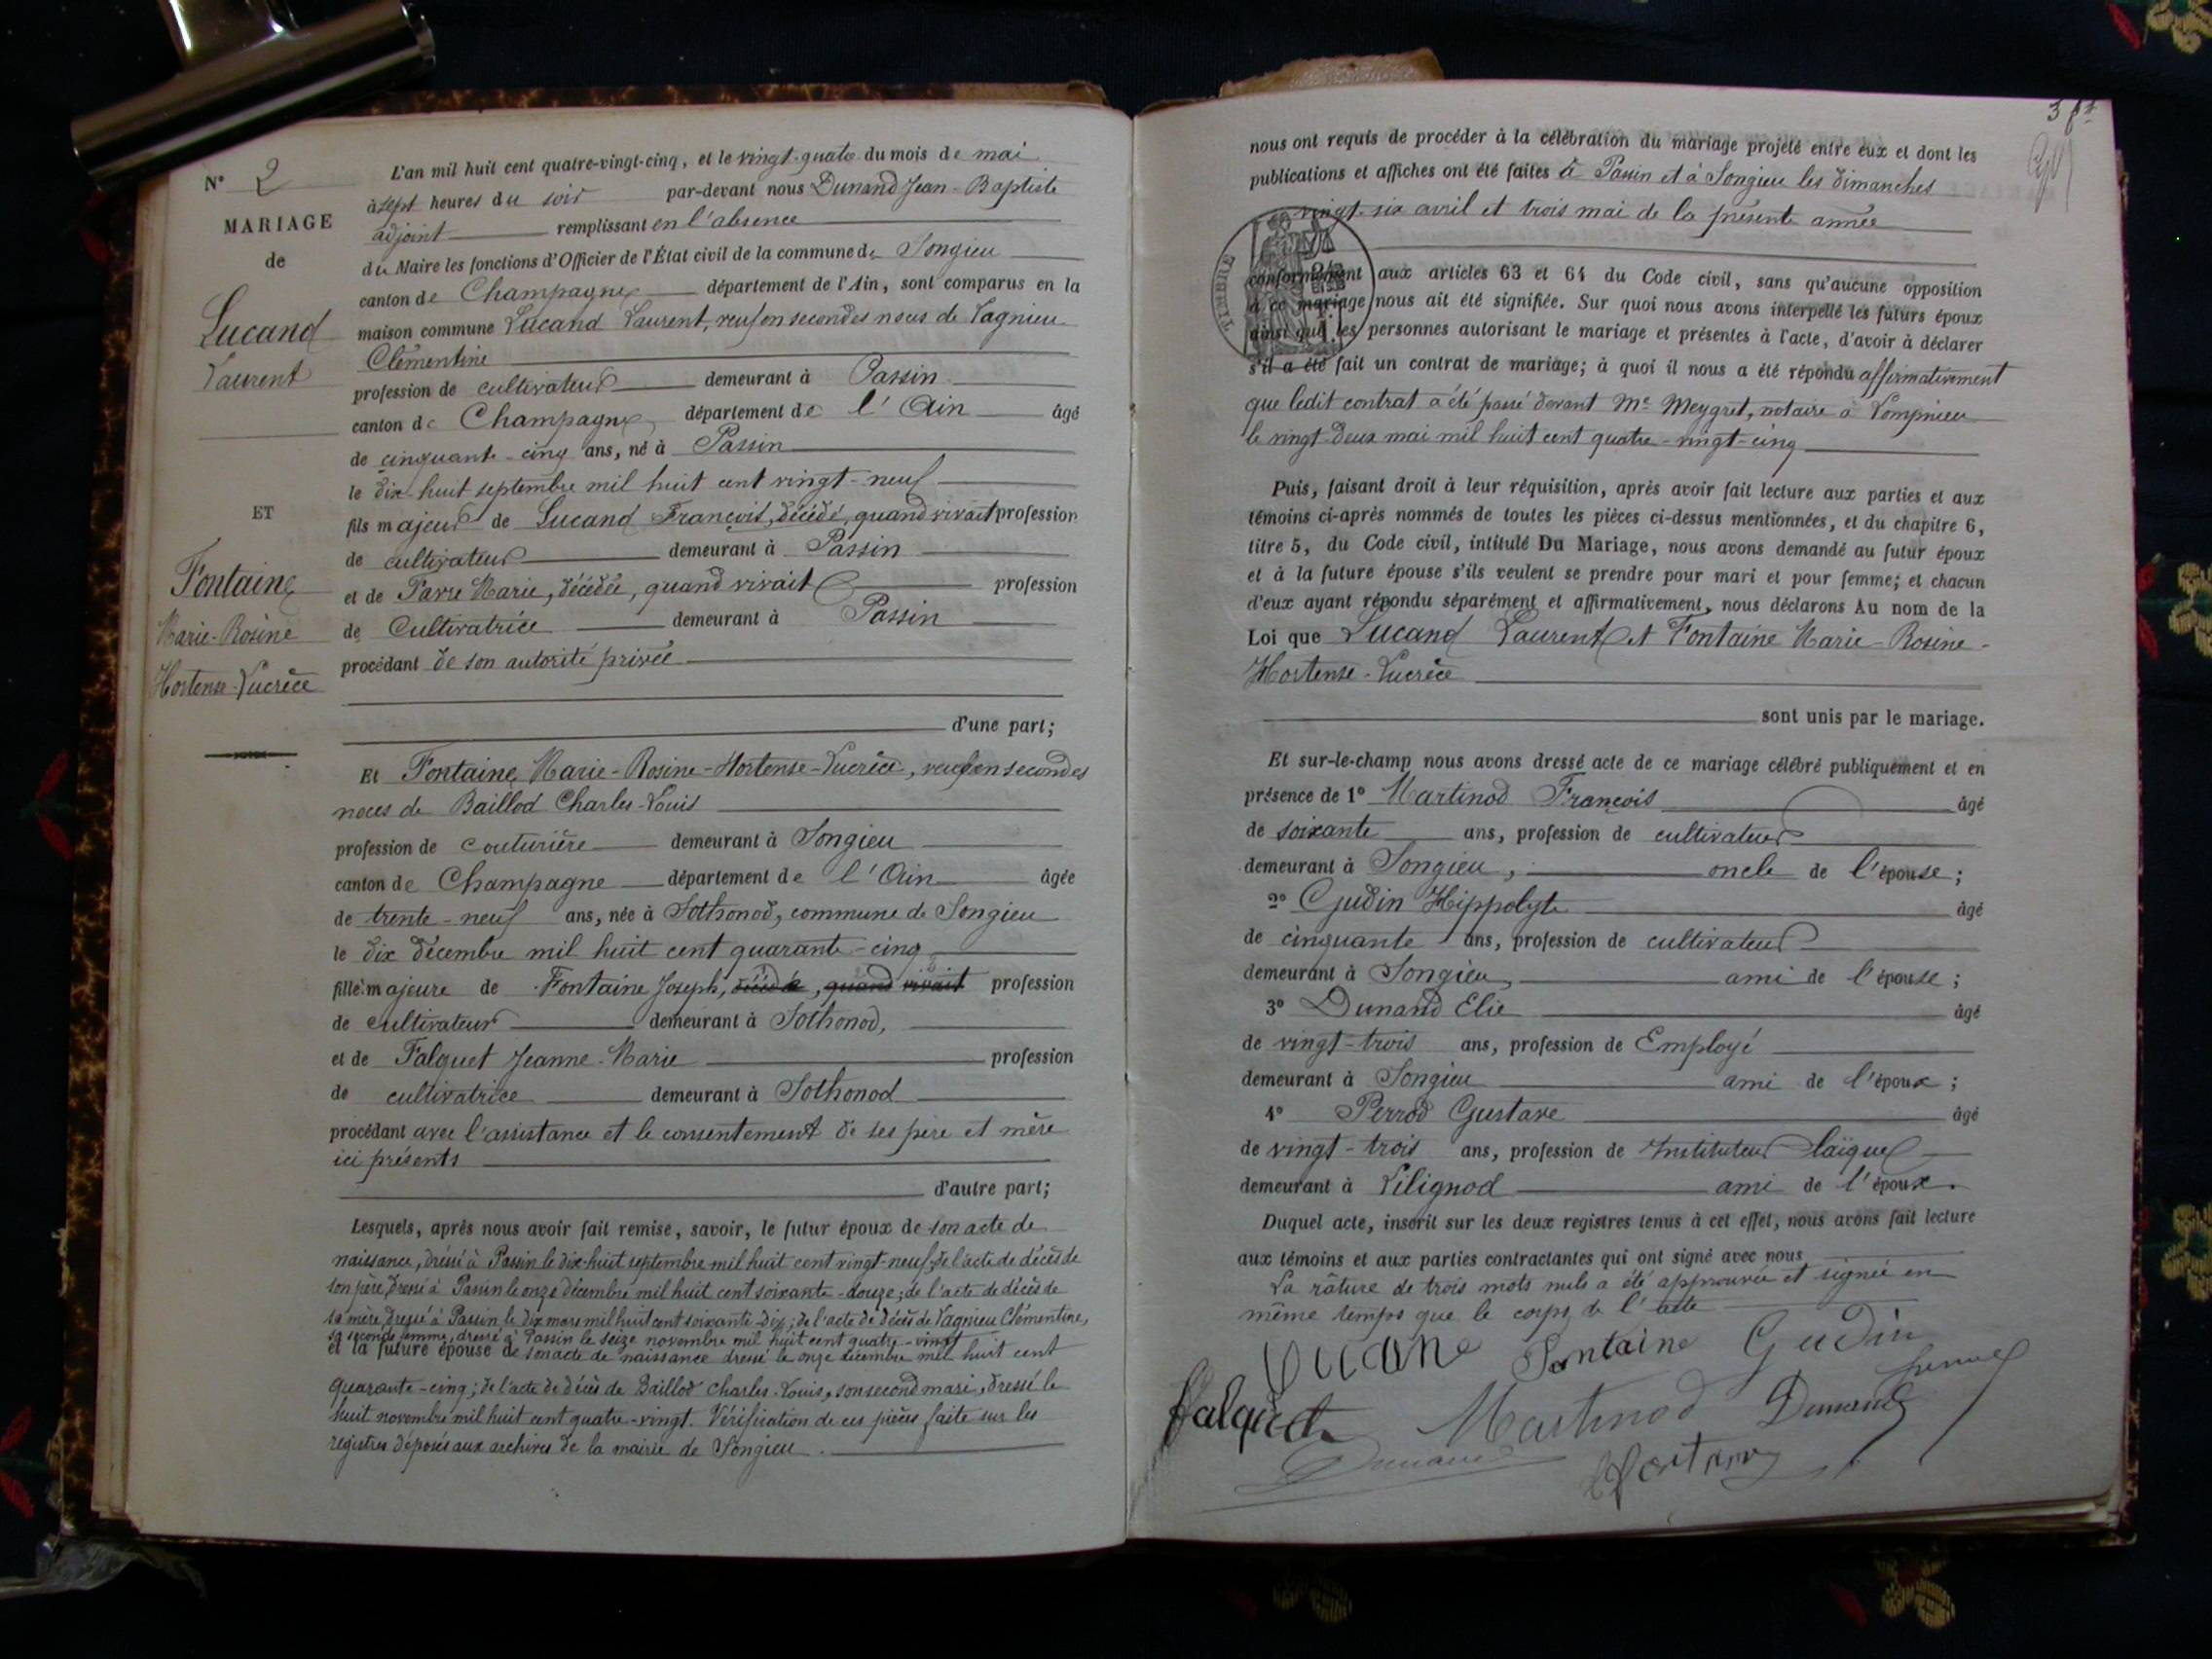 N° 2
MARIAGE
de
Lucand
Laurent
ET
Fontaine
Marie-Rosine
Hortense-Lucrèce
L'an mil huit cent quatre-vingt-cinq, et le vingt-quatre du mois de mai
à sept heures du soir par-devant nous Dunand Jean-Baptiste
adjoint remplissant en l'absence
du Maire les fonctions d'Officier de l'État civil de la commune de Songieu
canton de Champagne département de l'Ain, sont comparus en la
maison commune Lucand Laurent, veuf en secondes noces de Vagnieu
Clémentine
profession de cultivateur demeurant à Passin
canton de Champagne département de l'Ain âgé
de cinquante-cinq ans, né à Passin
le dix-huit septembre mil huit cent vingt-neuf
fils majeur de Lucand François, décédé, quand vivait profession
de cultivateur demeurant à Passin
et de Favre Marie, décédée, quand vivait profession
de Cultivatrice demeurant à Passin
procédant de son autorité privée
d'une part;
Et Fontaine Marie-Rosine-Hortense-Lucrèce, veuf en secondes
noces de Baillod Charles-Louis
profession de couturière demeurant à Songieu
canton de Champagne département de l'Ain âgée
de trente-neuf ans, née à Sothonod, commune de Songieu
le dix décembre mil huit cent quarante-cinq
fille majeure de Fontaine Joseph, décédé, quand vivait profession
de cultivateur demeurant à Sothonod,
et de Falquet Jeanne-Marie profession
de cultivatrice demeurant à Sothonod
procédant avec l'assistance et le consentement de ses père et mère
ici présents
d'autre part;
Lesquels, après nous avoir fait remise, savoir, le futur époux de son acte de
naissance, dressé à Passin le dix-huit septembre mil huit cent vingt-neuf; de l'acte de décès de
son père, dressé à Passin le onze décembre mil huit cent soixante-douze; de l'acte de décès de
sa mère dressé à Passin le dix mars mil huit cent soixante-dix; de l'acte de décès de Vagnieu Clémentine,
sa seconde femme, dressé à Passin le seize novembre mil huit cent quatre-vingt
et la future épouse de son acte de naissance dressé le onze décembre mil huit cent
quarante-cinq; de l'acte de décès de Baillod Charles-Louis, son second mari, dressé le
huit novembre mil huit cent quatre-vingt. Vérification de ces pièces faite sur les
registres déposés aux archives de la mairie de Songieu.
nous ont requis de procéder à la célébration du mariage projeté entre eux et dont les
publications et affiches ont été faites à Passin et à Songieu les dimanches
vingt-six avril et trois mai de la présente année
TIMBRE
conformément aux articles 63 et 64 du Code civil, sans qu'aucune opposition
à ce mariage nous ait été signifiée. Sur quoi nous avons interpellé les futurs époux
ainsi que les personnes autorisant le mariage et présentes à l'acte, d'avoir à déclarer
s'il a été fait un contrat de mariage; à quoi il nous a été répondu affirmativement
que ledit contrat a été passé devant Me Meygret, notaire à Lompnieu
le vingt-deux mai mil huit cent quatre-vingt-cinq
Puis, faisant droit à leur réquisition, après avoir fait lecture aux parties et aux
témoins ci-après nommés de toutes les pièces ci-dessus mentionnées, et du chapitre 6,
titre 5, du Code civil, intitulé Du Mariage, nous avons demandé au futur époux
et à la future épouse s'ils veulent se prendre pour mari et pour femme; et chacun
d'eux ayant répondu séparément et affirmativement, nous déclarons Au nom de la
Loi que Lucand Laurent et Fontaine Marie-Rosine-
Hortense-Lucrèce
sont unis par le mariage.
Et sur-le-champ nous avons dressé acte de ce mariage célébré publiquement et en
présence de 1° Martinod François âgé
de soixante ans, profession de cultivateur
demeurant à Songieu, oncle de l'épouse;
2° Gudin Hippolyte âgé
de cinquante ans, profession de cultivateur
demeurant à Songieu, ami de l'épouse;
3° Dunand Elie âgé
de vingt-trois ans, profession de Employé
demeurant à Songieu ami de l'époux;
4° Perrod Gustave âgé
de vingt-trois ans, profession de Instituteur laïque
demeurant à Lilignod ami de l'époux.
Duquel acte, inscrit sur les deux registres tenus à cet effet, nous avons fait lecture
aux témoins et aux parties contractantes qui ont signé avec nous
La râture de trois mots nuls a été approuvée et signée en
même temps que le corps de l'acte
Fontaine Gudin
Falquet Martinod Dunand
Dunand